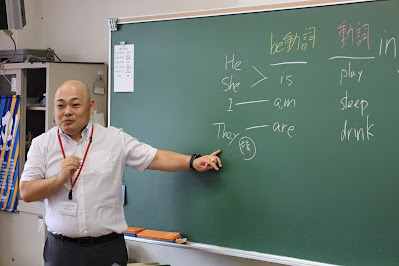 be動詞 動詞 in
He
She > is play
I — am sleep
They — are drink